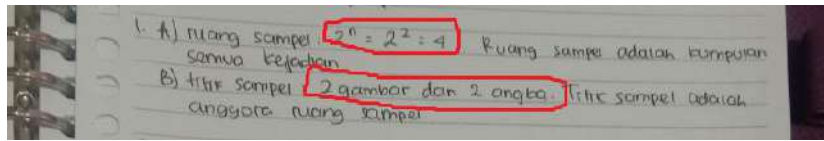 1. A) ruang sampel. 2ⁿ = 2² = 4. Ruang sampe adalah kumpulan
semua kejadian
B) titik sampel 2 gambar dan 2 angka. Titik sampel adalah
anggota ruang sampel